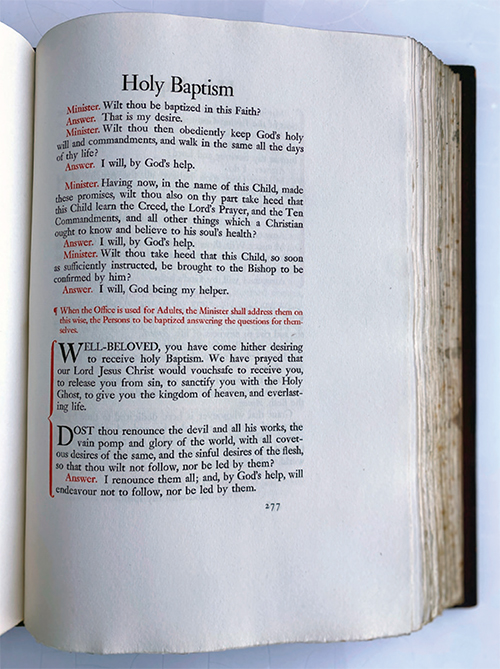 Holy Baptism
Minister. Wilt thou be baptized in this Faith?
Answer. That is my desire.
Minister. Wilt thou then obediently keep God's holy
will and commandments, and walk in the same all the days
of thy life?
Answer. I will, by God's help.
Minister. Having now, in the name of this Child, made
these promises, wilt thou also on thy part take heed that
this Child learn the Creed, the Lord's Prayer, and the Ten
Commandments, and all other things which a Christian
ought to know and believe to his soul's health?
Answer. I will, by God's help.
Minister. Wilt thou take heed that this Child, so soon
as sufficiently instructed, be brought to the Bishop to be
confirmed by him?
Answer. I will, God being my helper.
¶ When the Office is used for Adults, the Minister shall address them on
this wise, the Persons to be baptized answering the questions for them-
selves.
WELL-BELOVED, you have come hither desiring
to receive holy Baptism. We have prayed that
our Lord Jesus Christ would vouchsafe to receive you,
to release you from sin, to sanctify you with the Holy
Ghost, to give you the kingdom of heaven, and everlast-
ing life.
DOST thou renounce the devil and all his works, the
vain pomp and glory of the world, with all covet-
ous desires of the same, and the sinful desires of the flesh,
so that thou wilt not follow, nor be led by them?
Answer. I renounce them all; and, by God's help, will
endeavour not to follow, nor be led by them.
277